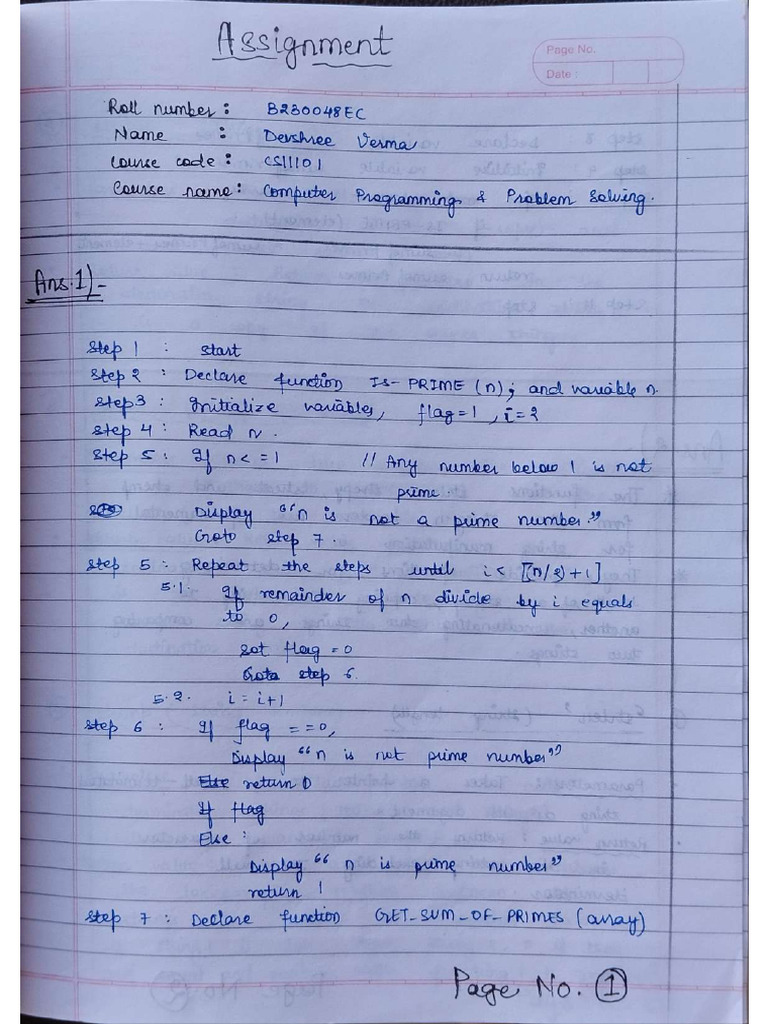 Assignment
Page No.
Date :
Roll number : B230048EC
Name : Devshree Verma
Course code : CS11101
Course name : Computer Programming & Problem Solving.
Ans.1)-
Step 1 : start
Step 2 : Declare function IS-PRIME (n); and variable n.
Step3 : Initialize variables, flag=1, i=2
Step 4 : Read n.
Step 5 : If n<=1 // Any number below 1 is not
prime.
Display “n is not a prime number.”
Goto step 7.
Step 5 : Repeat the steps until i < [(n/2)+1]
5.1. If remainder of n divide by i equals
to 0,
set flag =0
Goto step 6.
5.2. i = i+1
Step 6 : If flag ==0,
Display “n is not prime number”
Else return 0
If flag
Else :
Display “ n is prime number”
return 1
Step 7 : Declare function GET_SUM_OF_PRIMES (array)
Page No. 1